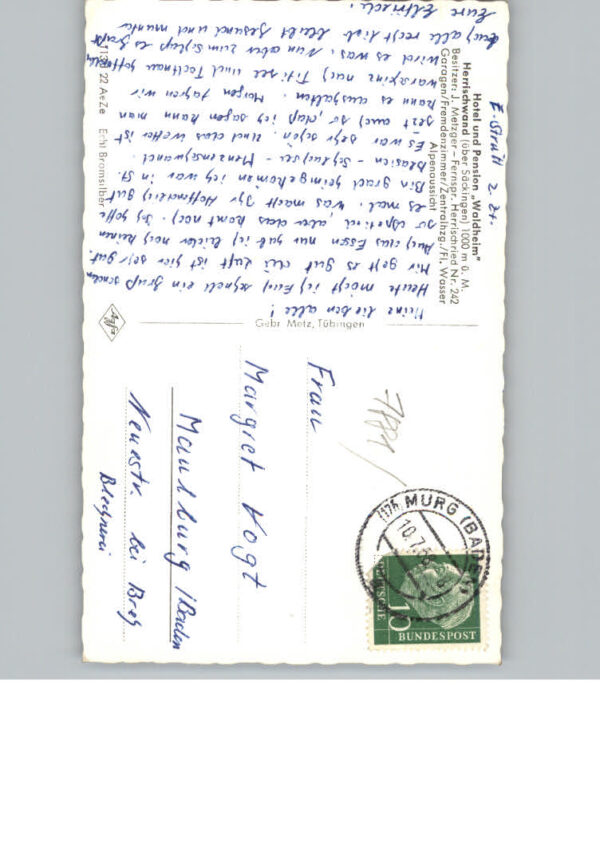 Hotel und Pension „Waldheim"
Herrischwand (über Säckingen) 1000 m ü. M.
Besitzer: J. Metzger – Fernspr. Herrischried Nr. 242
Garagen/Fremdenzimmer/Zentralhzg./Fl. Wasser
Alpenaussicht
22 AeZe Echt Bromsilber
Gebr. Metz, Tübingen
Agfa
Meine lieben alle!
Heute möcht ich Euch schnell ein gruß senden
Mir geht es gut die Luft ist hier sehr gut.
Auch das Essen nur hab ich leider noch keinen
so apetied, aber das komt noch. Ich hoffe
es mal. Was macht Ihr Hoffentlich gut
Bin grad heimgekomen ich war in St.
Blasien - Schluchsee - Menzenschwand.
Es war sehr schön. Und das Wetter ist
jetzt auch so, daß ich sagen kann man
kann es aushalten. Morgen fahren wir
warscheinz nach Titisee und Todtnau hoffentlich
wird es was. Nun aber zum Schluß es grüßt
Euch alle recht lieb bleibt gesund und munter
Eure Elfriede.
Frau
Margret Vogt
Maulburg /Baden
Neuestr. bei
Blechnerei
7884
(17b) MURG (BADEN)
10.7.
10
DEUTSCHE
BUNDESPOST